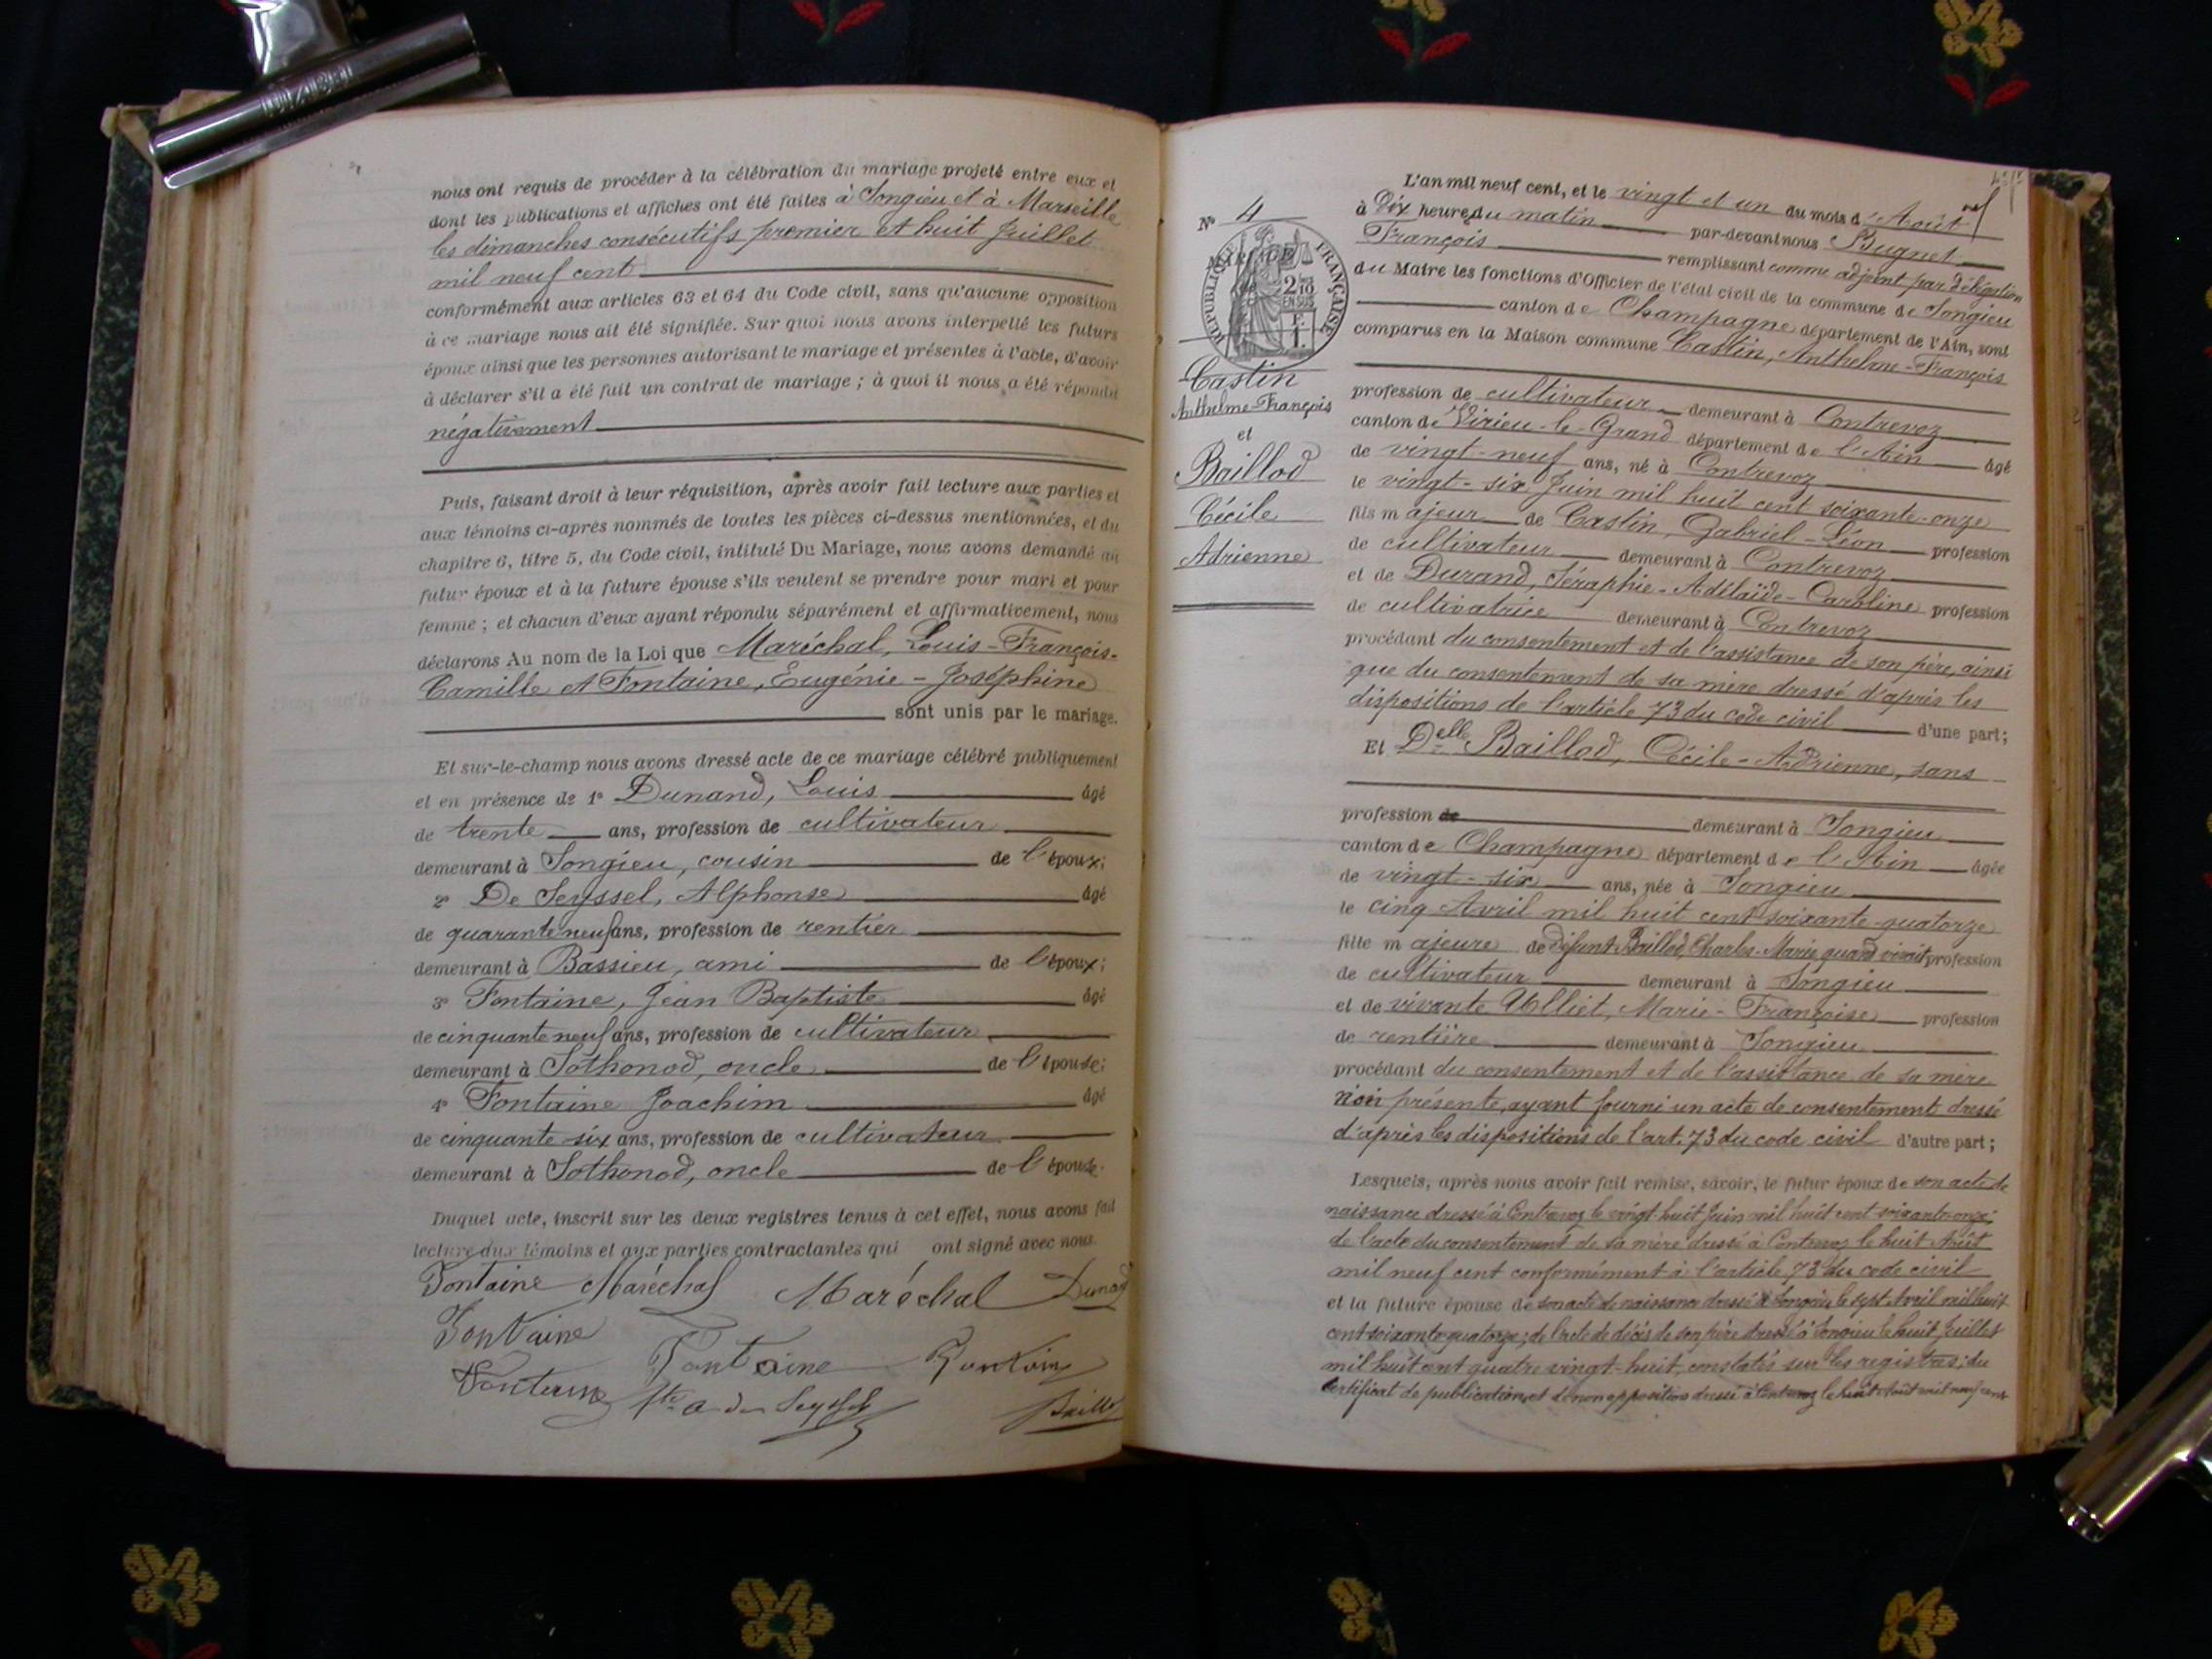 nous ont requis de procéder à la célébration du mariage projeté entre eux et
dont les publications et affiches ont été faites à Songieu et à Marseille
les dimanches consécutifs premier et huit Juillet
mil neuf cent
conformément aux articles 63 et 64 du Code civil, sans qu'aucune opposition
à ce mariage nous ait été signifiée. Sur quoi nous avons interpellé les futurs
époux ainsi que les personnes autorisant le mariage et présentes à l'acte, d'avoir
à déclarer s'il a été fait un contrat de mariage ; à quoi il nous a été répondu
négativement
Puis, faisant droit à leur réquisition, après avoir fait lecture aux parties et
aux témoins ci-après nommés de toutes les pièces ci-dessus mentionnées, et du
chapitre 6, titre 5, du Code civil, intitulé Du Mariage, nous avons demandé au
futur époux et à la future épouse s'ils veulent se prendre pour mari et pour
femme ; et chacun d'eux ayant répondu séparément et affirmativement, nous
déclarons Au nom de la Loi que Maréchal, Louis-François-
Camille et Fontaine, Eugénie - Joséphine
sont unis par le mariage.
Et sur-le-champ nous avons dressé acte de ce mariage célébré publiquement
et en présence de 1° Dunand, Louis âgé
de trente ans, profession de cultivateur
demeurant à Songieu, cousin de l'époux;
2° De Seyssel, Alphonse âgé
de quarante neuf ans, profession de rentier
demeurant à Bassieu, ami de l'époux;
3° Fontaine, Jean Baptiste âgé
de cinquante neuf ans, profession de cultivateur
demeurant à Sothonod, oncle de l'épouse;
4° Fontaine Joachim âgé
de cinquante six ans, profession de cultivateur
demeurant à Sothonod, oncle de l'épouse.
Duquel acte, inscrit sur les deux registres tenus à cet effet, nous avons fait
lecture aux témoins et aux parties contractantes qui ont signé avec nous.
Fontaine Maréchal Maréchal Dunand
Fontaine
Fontaine Fontaine
Fontaine a de Seyssel
N° 4
RÉPUBLIQUE FRANÇAISE
2/10 EN SUS
F. 1.
Castin
Anthelme-François
et
Baillod
Cécile
Adrienne
L'an mil neuf cent, et le vingt et un du mois d'Août
à Dix heures du matin par-devant nous Bugnet
François remplissant comme adjoint par délégation
du Maire les fonctions d'Officier de l'état civil de la commune de Songieu
canton de Champagne département de l'Ain, sont
comparus en la Maison commune Castin, Anthelme-François
profession de cultivateur demeurant à Contrevoz
canton de Virieu-le-Grand département de l'Ain âgé
de vingt-neuf ans, né à Contrevoz
le vingt-six Juin mil huit cent soixante-onze
fils majeur de Castin, Gabriel-Léon profession
de cultivateur demeurant à Contrevoz
et de Durand, Séraphie-Adélaïde-Caroline profession
de cultivatrice demeurant à Contrevoz
procédant du consentement et de l'assistance de son père, ainsi
que du consentement de sa mère dressé d'après les
dispositions de l'article 73 du code civil d'une part;
Et Delle Baillod, Cécile-Adrienne, sans
profession de demeurant à Songieu
canton de Champagne département de l'Ain âgée
de vingt-six ans, née à Songieu
le cinq Avril mil huit cent soixante-quatorze
fille majeure de défunt Baillod Charles-Marie quand vivait profession
de cultivateur demeurant à Songieu
et de vivante Ulliet, Marie-Françoise profession
de rentière demeurant à Songieu
procédant du consentement et de l'assistance de sa mère
non présente, ayant fourni un acte de consentement dressé
d'après les dispositions de l'art. 73 du code civil d'autre part;
Lesquels, après nous avoir fait remise, savoir, le futur époux de son acte de
naissance dressé à Contrevoz le vingt-huit Juin mil huit cent soixante-onze;
de l'acte du consentement de sa mère dressé à Contrevoz le huit Août
mil neuf cent conformément à l'article 73 du code civil
et la future épouse de son acte de naissance dressé à Songieu le sept Avril mil huit
cent soixante quatorze; de l'acte de décès de son père dressé à Songieu le huit Juillet
mil huit cent quatre vingt-huit, constatés sur les registres; du
certificat de publication et de non opposition dressé à Contrevoz le huit Août mil neuf cent